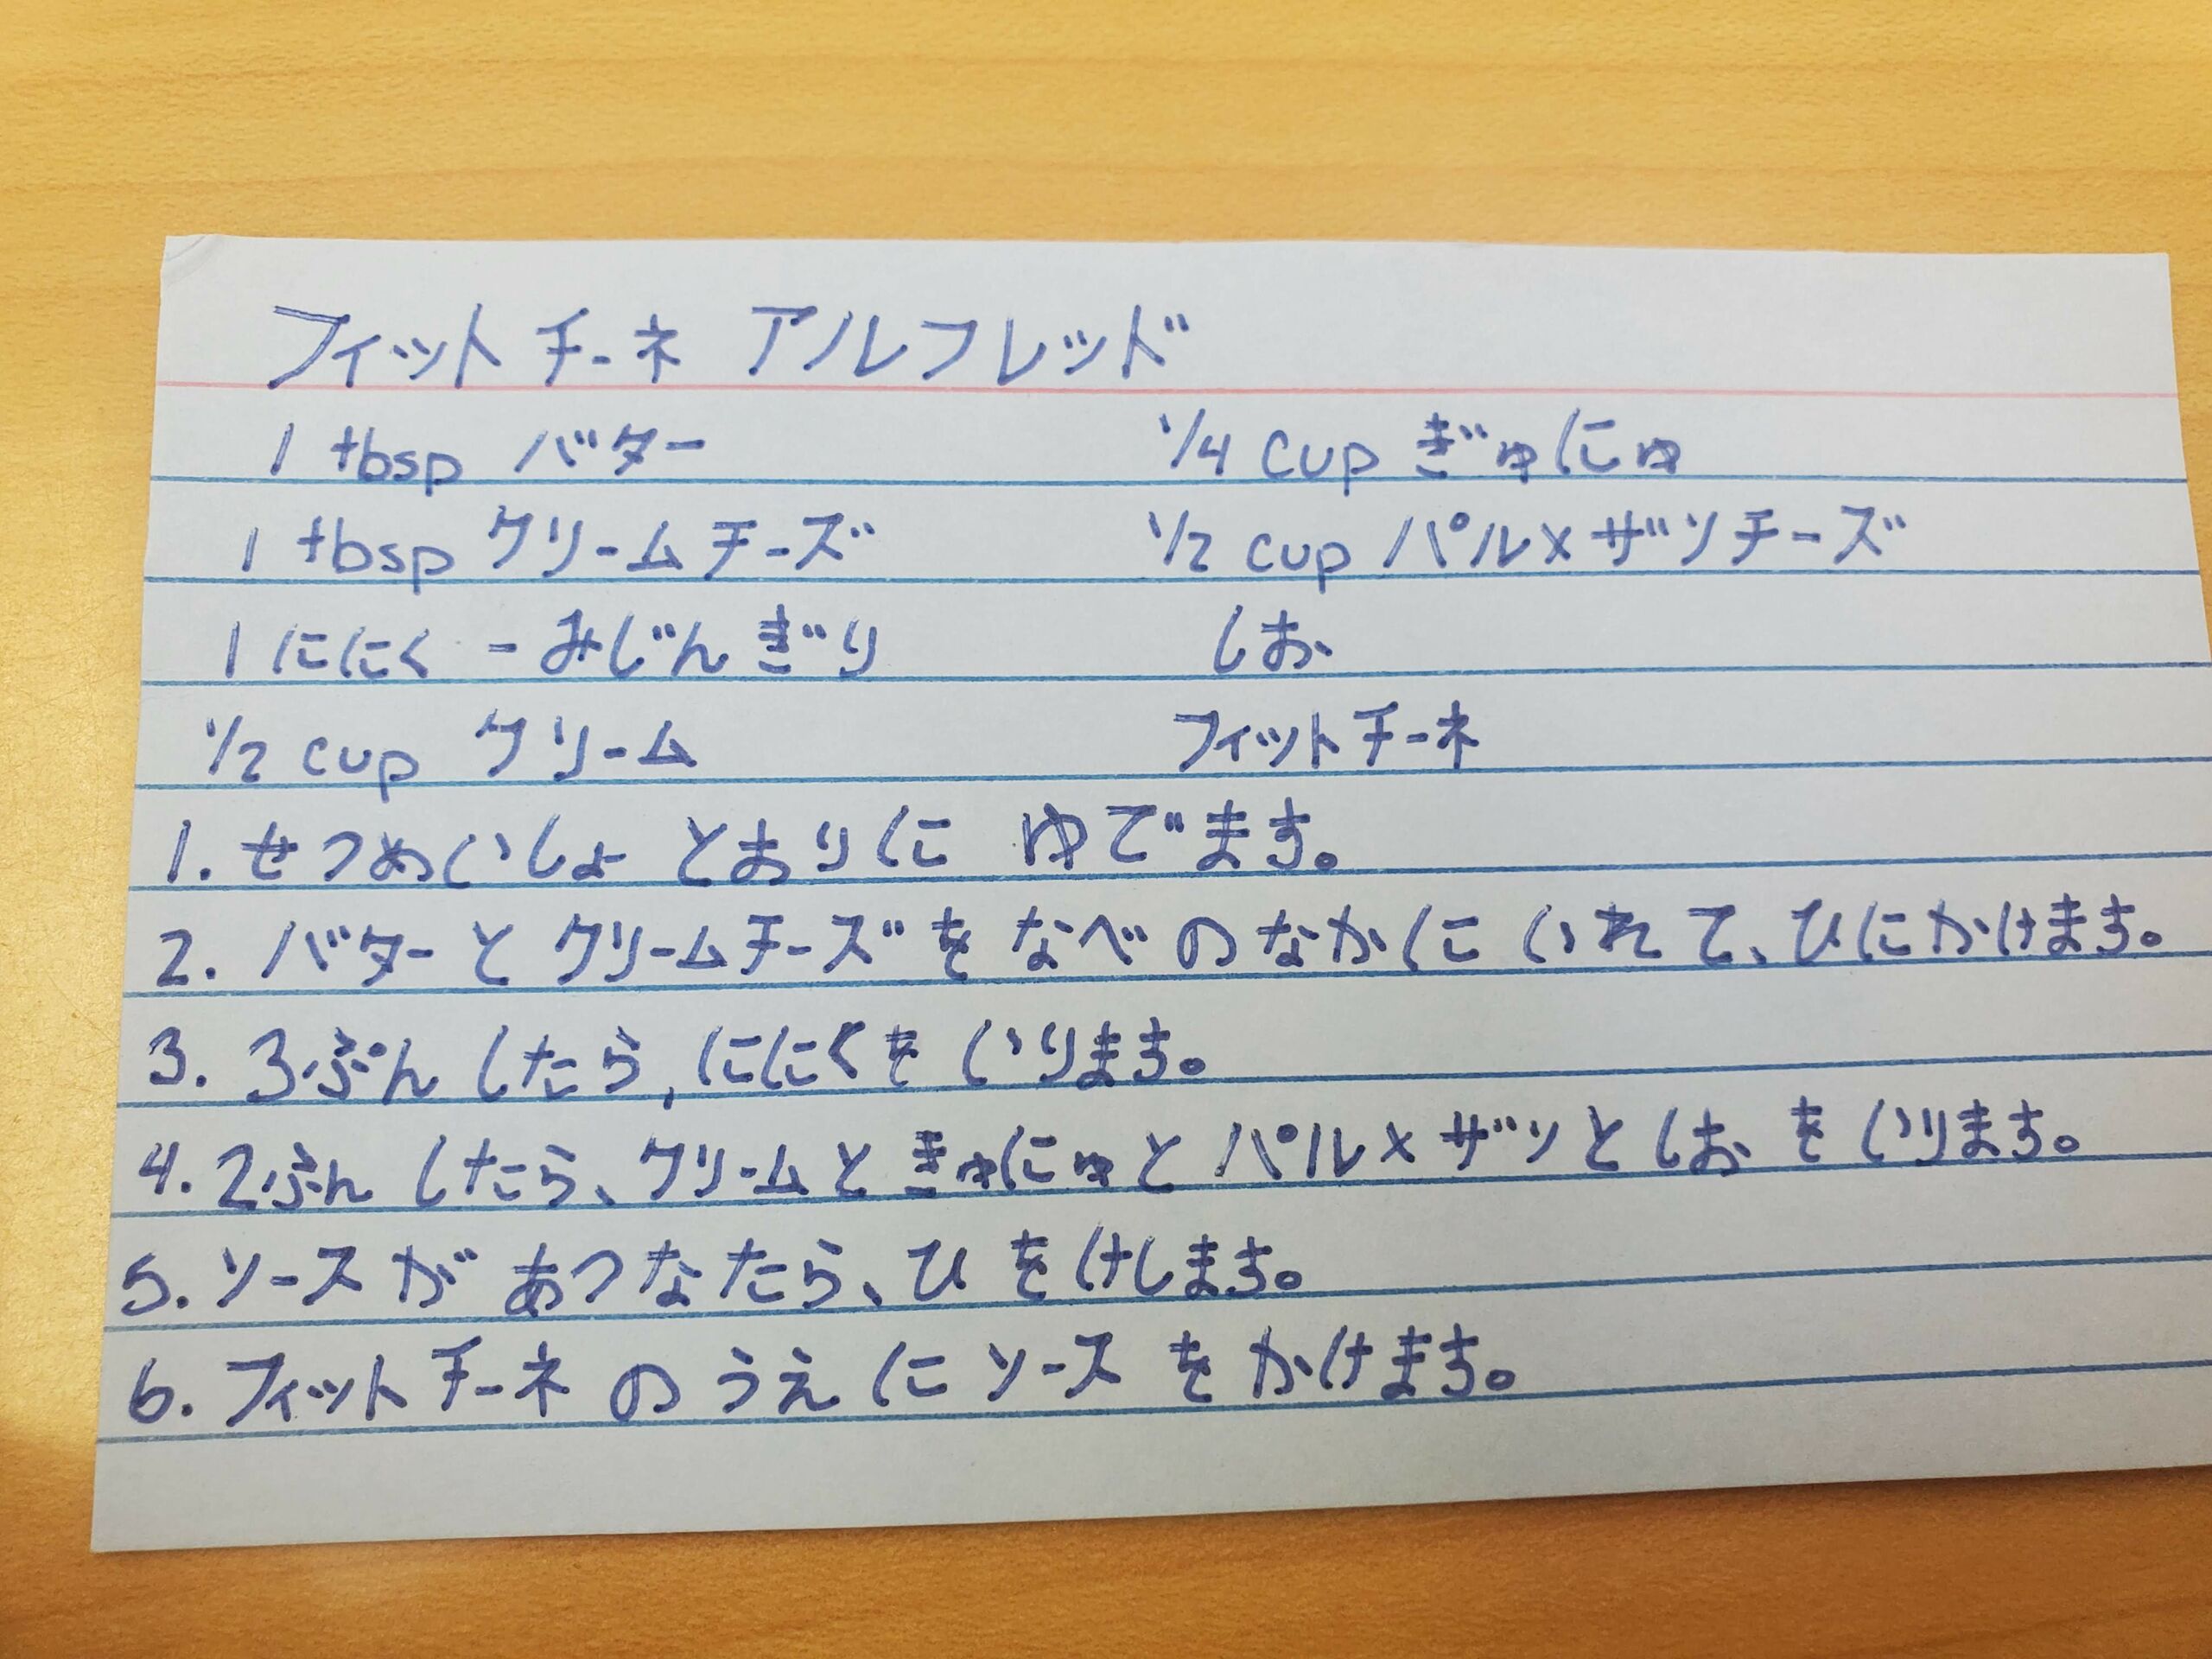 フィットチーネ アルフレッド
1 tbsp バター 1/4 cup ぎゅにゅ
1 tbsp クリームチーズ 1/2 cup パルメザンチーズ
1 ににく - みじんぎり しお
1/2 cup クリーム フィットチーネ
1. せつめいしょ とおりに ゆでます。
2. バターと クリームチーズを なべの なかに いれて、ひにかけます。
3. 3ぷん したら, ににくを いります。
4. 2ふん したら、クリームと きゅにゅと パルメザンと しお を いります。
5. ソースが あつなたら、ひ を けします。
6. フィットチーネ の うえ に ソース を かけます。